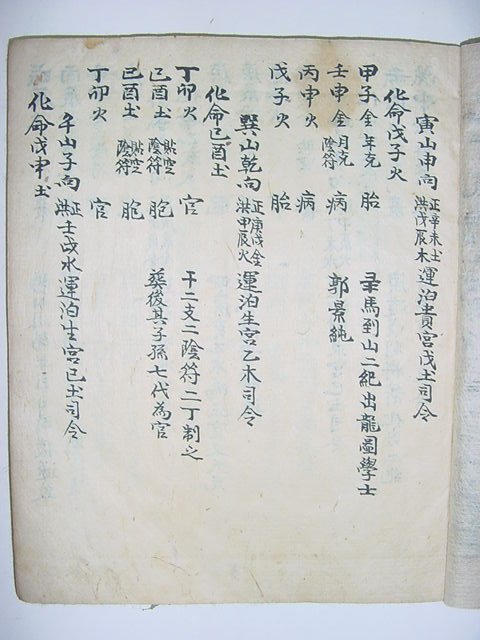 寅山申向 正辛未土 洪戊辰木 運泊貴宮戊土司令
化命戊子火
甲子金 年克 胎 馬到山二紀出龍圖學士
壬申金 月克 陰符 病 郭景純
丙申火 病
戊子火 胎
巽山乾向 正庚戌金 洪甲辰火 運泊生宮乙木司令
化命己酉土
丁卯火 官 干二支二陰符二丁制之
己酉土 陰符 胞 葬後其子孫七代為官
己酉土 陰符 胞
丁卯火 官
子向 正 洪 壬戌水 運泊生宮己土司令
化命戊申土